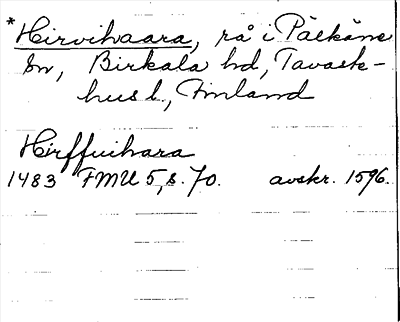 *Hirvihaara, rå i Pälkäne
sn, Birkala hd, Tavast-
hus l., Finland
Hirffuihara
1483 FMU 5, s. 70. avskr. 1596.